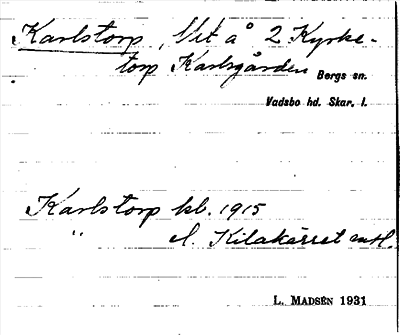 Karlstorp, Ut å 2 Kyrke-
torp Karlsgården Bergs sn.
Vadsbo hd. Skar. l.
Karlstorp kb. 1915
" l. Kilakärret mtl.
L. MADSÉN 1931